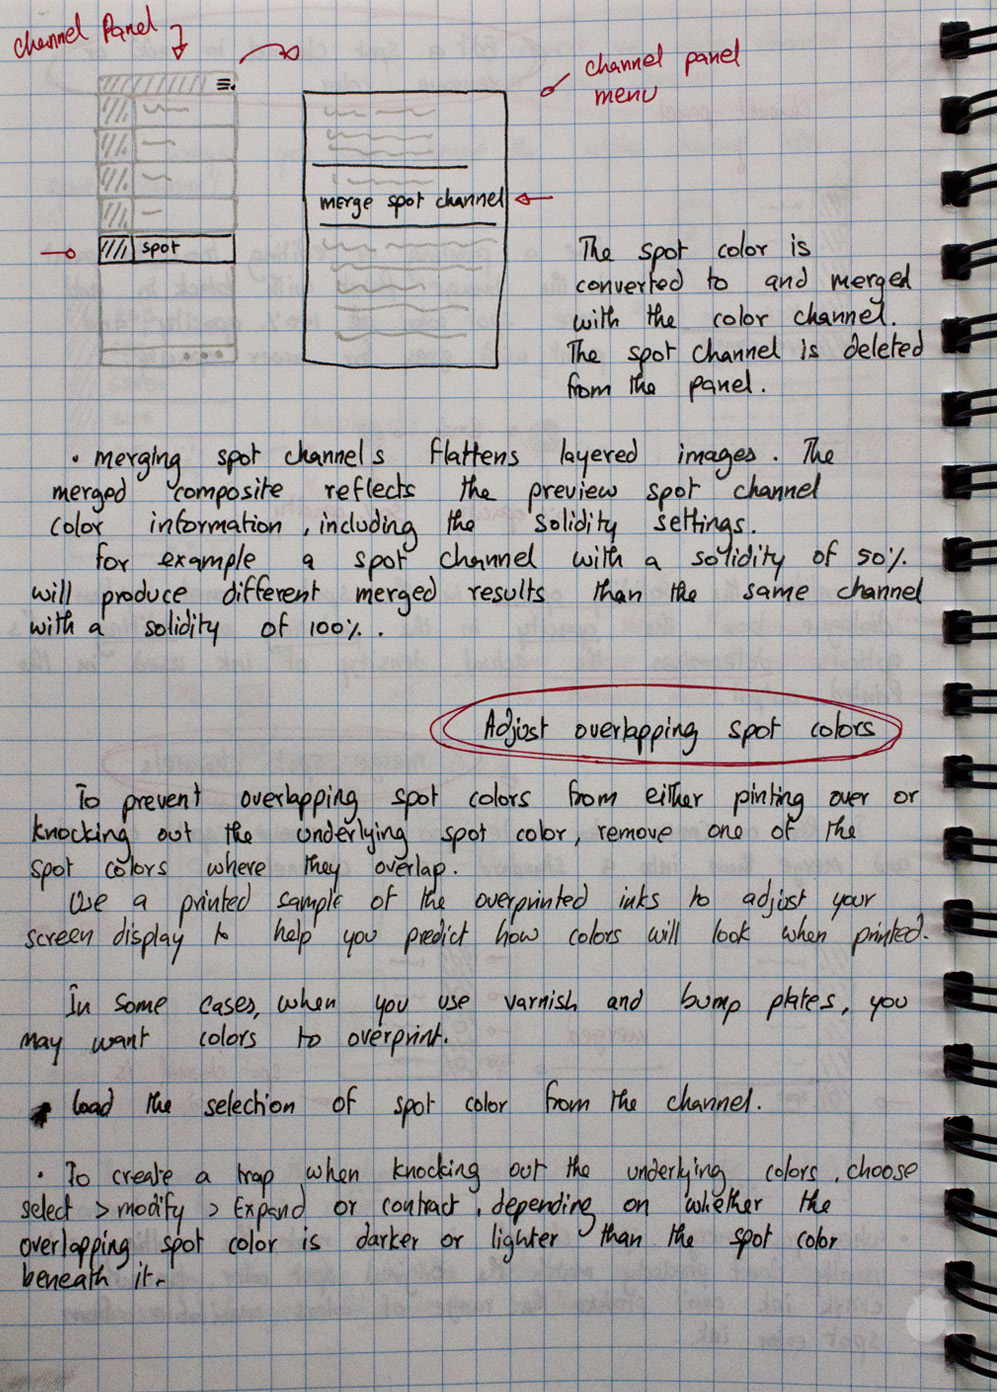 Channel Panel
channel panel
menu
merge spot channel
spot
The spot color is
converted to and merged
with the color channel.
The spot channel is deleted
from the panel.
• merging spot channels flattens layered images. The
merged composite reflects the preview spot channel
color information, including the solidity settings.
for example a spot channel with a solidity of 50%
will produce different merged results than the same channel
with a solidity of 100%.
Adjust overlapping spot colors
To prevent overlapping spot colors from either pinting over or
knocking out the underlying spot color, remove one of the
spot colors where they overlap.
Use a printed sample of the overprinted inks to adjust your
screen display to help you predict how colors will look when printed.
In some cases, when you use varnish and bump plates, you
may want colors to overprint.
load the selection of spot color from the channel.
• To create a trap when knocking out the underlying colors, choose
select > modify > Expand or contract, depending on whether the
overlapping spot color is darker or lighter than the spot color
beneath it.